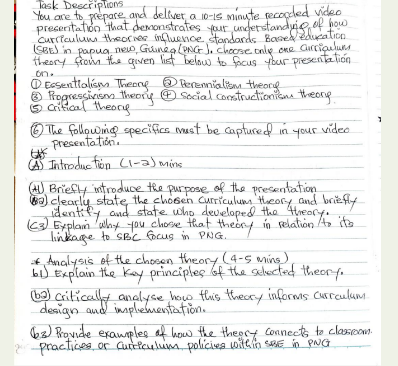 Task Descriptions
You are to prepare and deliver a 10-15 minute recorded video
presentation that demonstrates your understanding of how
curriculum theories influence Standards Based Education
(SBE) in papua new, Guinea (PNG). choose only one curriculum
theory from the given list below to focus your presentation
on.
① Essentialism Theory ② Perennialism theory
③ Progressivism theory ④ Social constructionism theory
⑤ Critical theory
⑥ The following specifics must be captured in your video
presentation.
(A) Introduction (1-2) mins
(A1) Briefly introduce the purpose of the presentation
(a2) clearly state the chosen curriculum theory and briefly
identify and state who developed the theory.
(C3) Explain why you chose that theory in relation to its
linkage to SBC focus in PNG.
* Analysis of the chosen theory (4-5 mins)
b1) Explain the key principles of the selected theory.
(b2) critically analyse how this theory informs curriculum
design and implementation.
(b3) Provide examples of how the theory connects to classroom
practices or curriculum policies within SBE in PNG